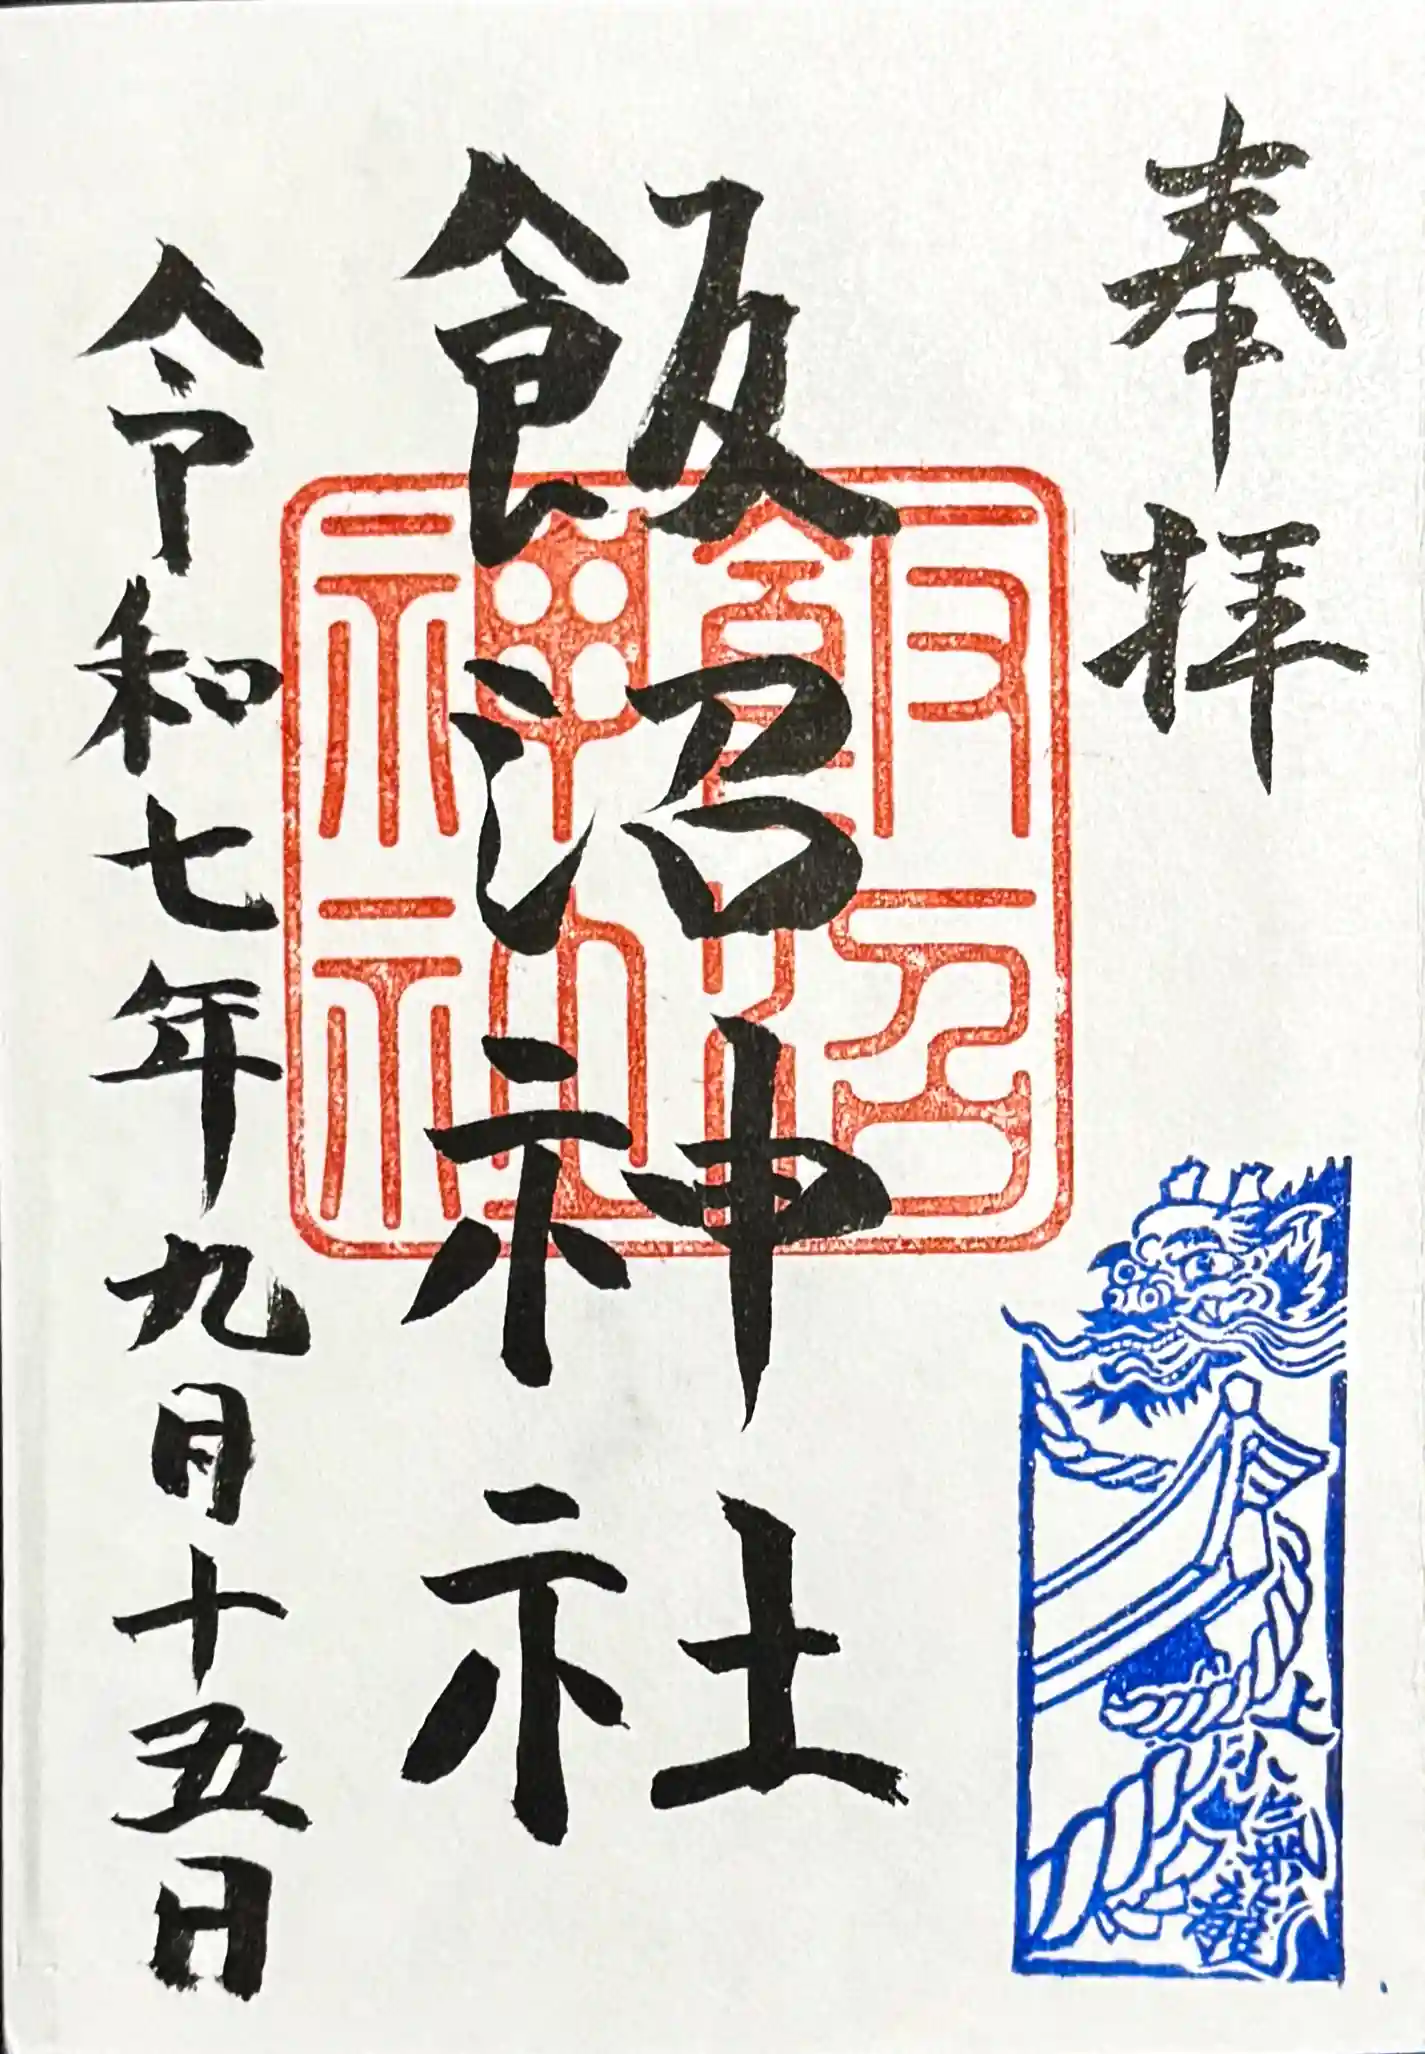 奉拝
飯沼神社
飯沼神社
令和七年九月十五日